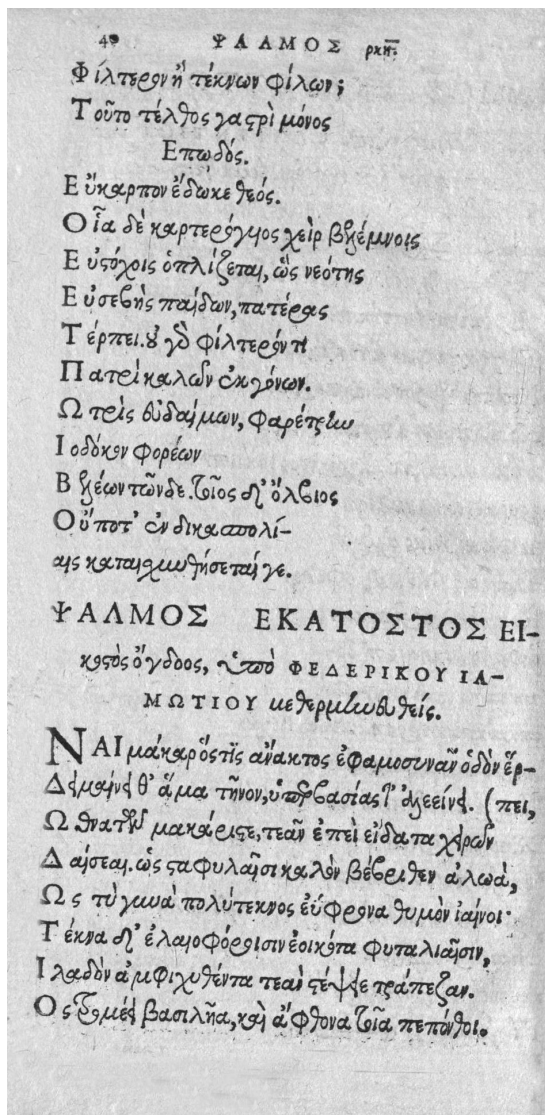 40 ΨΑΛΜΟΣ ρκη.
Φίλτερον ἢ τέκνων φίλων;
Τοῦτο τέλθος γαστρὶ μόνος
Επωδός.
Εὔκαρπον ἔδωκε θεός.
Οἷα δὲ καρτερόγυιος χεὶρ βελέμνοις
Εὐστόχοις ὁπλίζεται, ὣς νεότης
Εὐσεβὴς παίδων, πατέρας
Τέρπει. οὐ γὰρ φίλτερόν τι
Πατρὶ καλῶν ἐκγόνων.
Ω τρὶς εὐδαίμων, φαρέτρην
Ιοδόκον φορέων
Βελέων τῶνδε. οἷος δ' ὄλβιος
Οὔποτ' ἐν δικασπολί-
αις καταισχυνθήσεταί γε.
ΨΑΛΜΟΣ ΕΚΑΤΟΣΤΟΣ ΕΙ-
κοστὸς ὄγδοος, ὑπὸ ΦΕΔΕΡΙΚΟΥ ΙΑ-
ΜΩΤΙΟΥ μεθερμηνευθείς.
ΝΑΙ μάκαρ ὅστις ἄνακτος ἐφαμοσυνᾶν ὁδὸν ἕρ-
Δειμαίνει θ' ἅμα τῆνον, ὑπερβασίας τ' ἀλεείνει. (πει,
Ω θνατῶν μακάριστε, τεᾶν ἐπεὶ εἴδατα χειρῶν
Δαίσεαι. ὡς σταφυλαῖσι καλὸν βέβριθεν ἀλωὰ,
Ως τὺ γυνὰ πολύτεκνος ἐΰφρονα θυμὸν ἰαίνοι·
Τέκνα δ' ἐλαιοφόροισιν ἐοικότα φυταλιαῖσιν,
Ιλαδὸν ἀμφιχυθέντα τεαὶ στέψει τράπεζαν.
Ος τρομέει βασιλῆα, καὶ ἄφθονα τοῖα πεπόνθοι.